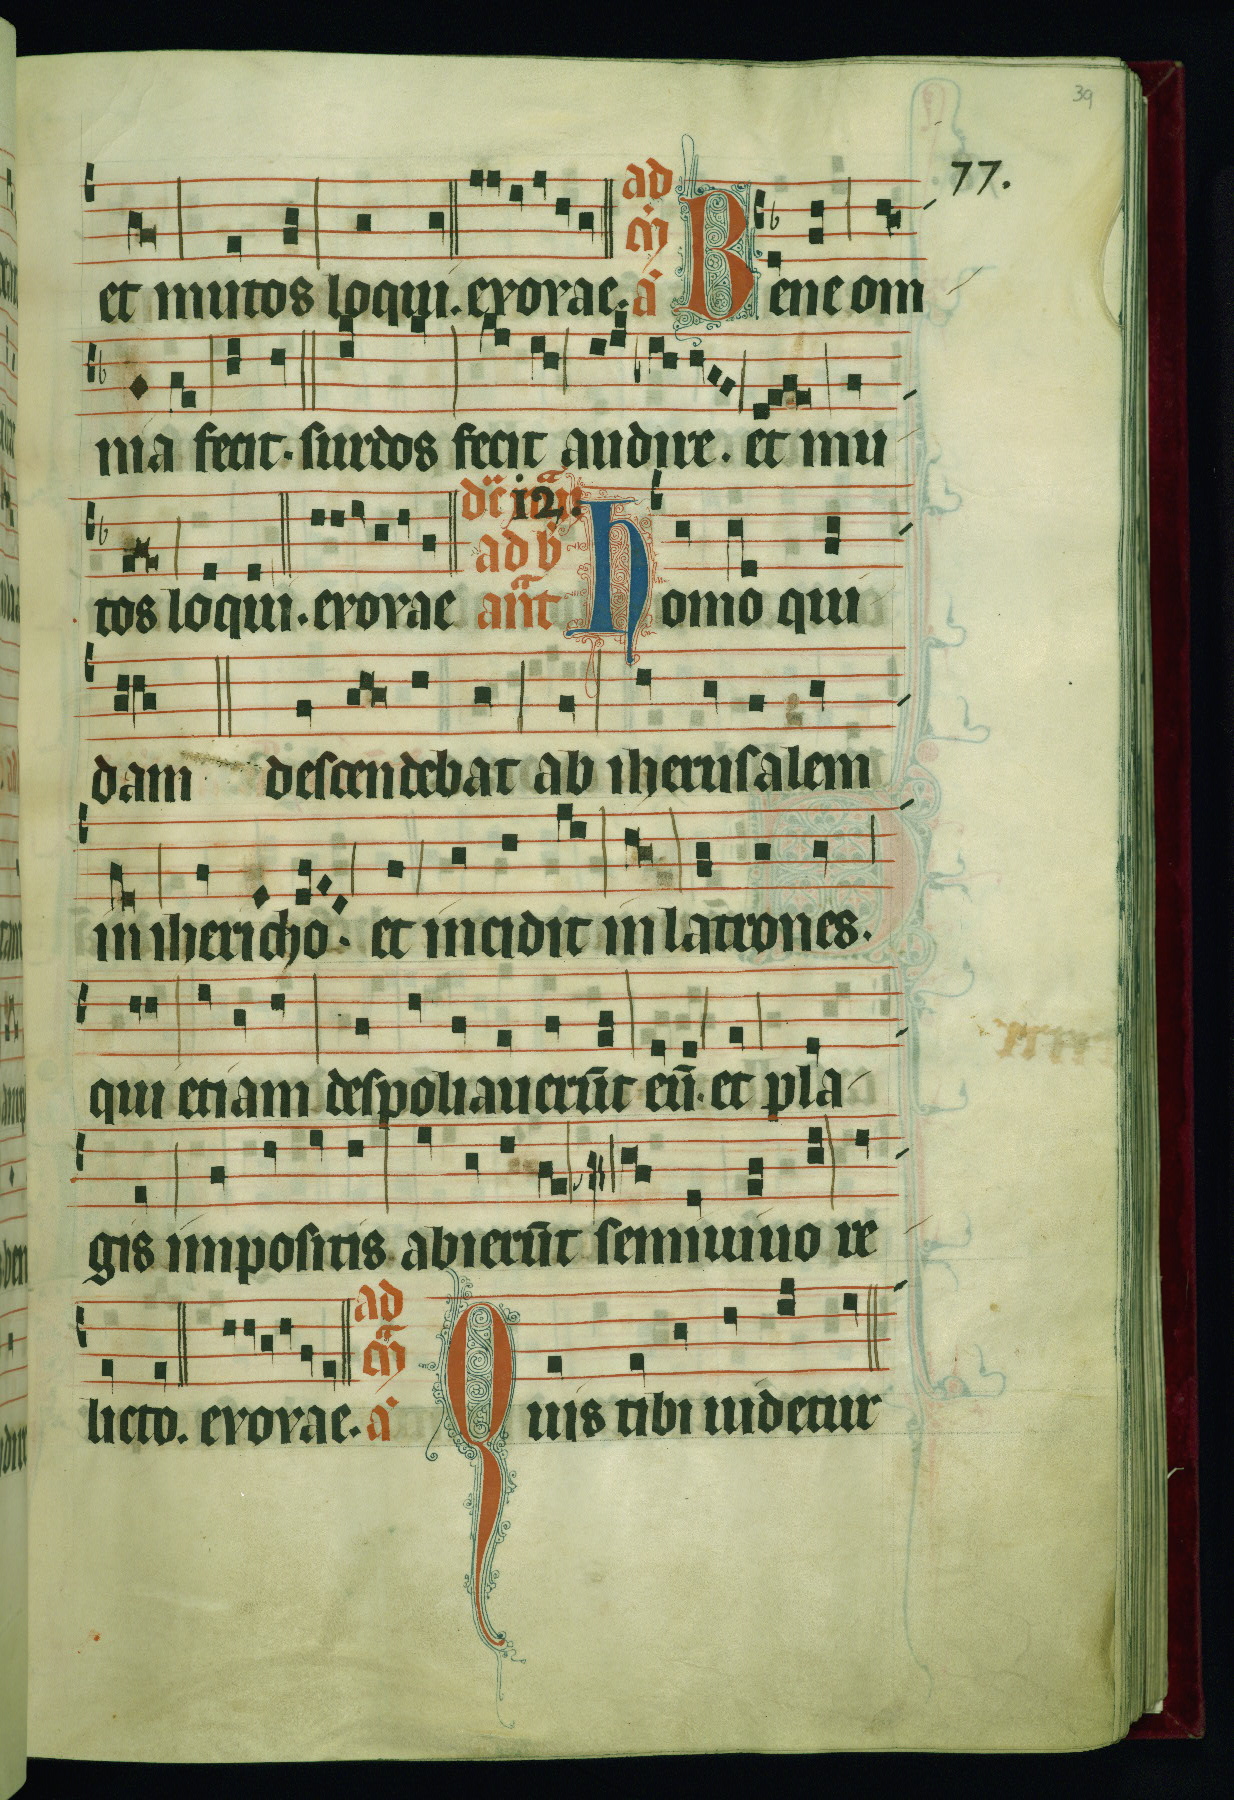 39
77.
ad
et mutos loqui. evovae. a Bene om
nia fecit. surdos fecit audire. et mu
12.
ad b
tos loqui. evovae ant homo qui
dam descendebat ab iherusalem
in ihericho. et incidit in latrones.
qui etiam despoliauerūt eū. et pla
gis impositis abierūt semiuiuo re
ad
licto. evovae. a Quis tibi uidetur